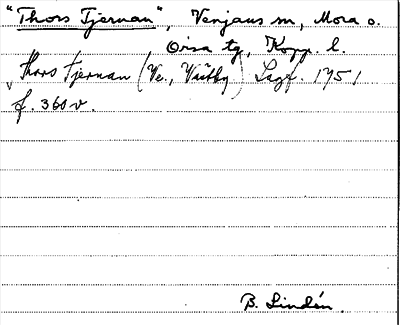 "Thors Tjernan", Venjans sn, Mora o.
Orsa tg, Kopp. l.
Thors Tjernan (Ve., Wåtby) Lagf. 1751
f. 360 v.
B. Lindén.